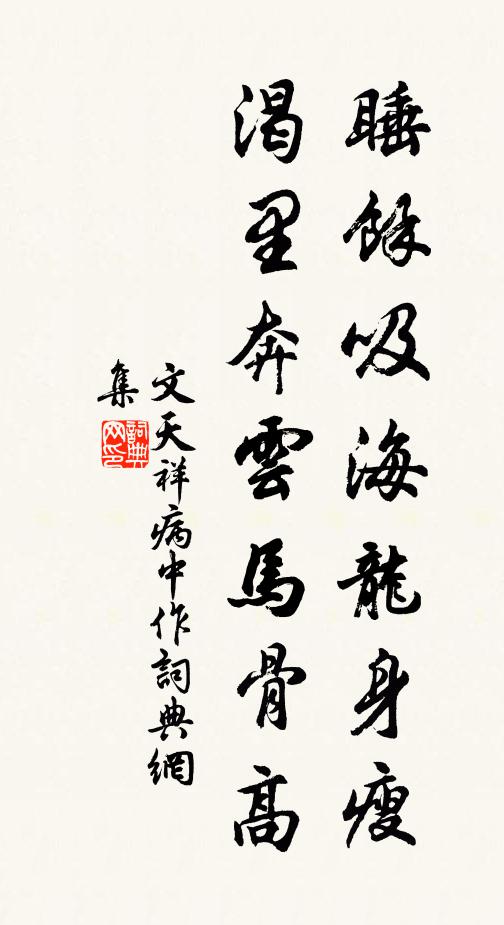 睡餘吸海龍身瘦
渴里奔雲馬骨高
文天祥病中作詞典網
集
詞典
网印